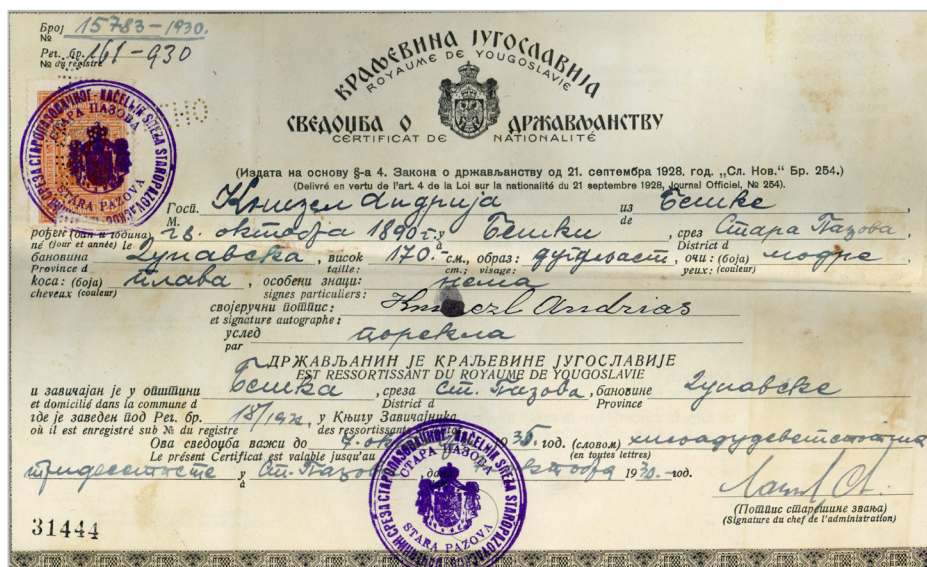 Број 15783-1930.
№
Рег. бр. 161-930
№ du registre
КРАЉЕВИНА ЈУГОСЛАВИЈА
ROYAUME DE YOUGOSLAVIE
СВЕДОЏБА О ДРЖАВЉАНСТВУ
CERTIFICAT DE NATIONALITÉ
СТАРА ПАЗОВА
STARA PAZOVA
(Издата на основу §-а 4. Закона о држављанству од 21. септембра 1928. год. „Сл. Нов.“ Бр. 254.)
(Delivré en vertu de l'art. 4 de la Loi sur la nationalité du 21 septembre 1928, Journal Officiel, № 254).
Госп. Книзел Андрија из Бешке,
M. de
рођен (дан и година) 28. октобра 1890 г. у Бешки, срез Стара Пазова,
né (jour et année) le à District d
бановина Дунавска, висок 170.- см., образ: дугуљаст, очи: (боја) модре
Province d taille: cm.; visage: yeux: (couleur)
коса: (боја) плава, особени знаци: нема
cheveux (couleur) signes particuliers:
својеручни потпис: Andrias
et signature autographe:
услед порекла
par
ДРЖАВЉАНИН ЈЕ КРАЉЕВИНЕ ЈУГОСЛАВИЈЕ
EST RESSORTISSANT DU ROYAUME DE YOUGOSLAVIE
и завичајан је у општини Бешка, среза Ст. Пазова, бановине Дунавске
et domicilié dans la commune d District d Province
где је заведен под Рег. бр. у Књигу Завичајника
où il est enregistré sub № du registre des ressortissants
Ова сведоџба важи до 7. 1935. год. (словом) хиљадудеветстотина
Le présent Certificat est valable jusqu'au (en toutes lettres)
тридесетпете у Ст. Пазови 1930.- год.
à
(Потпис старешине звања)
(Signature du chef de l'administration)
31444
СТАРА ПАЗОВА
STARA PAZOVA